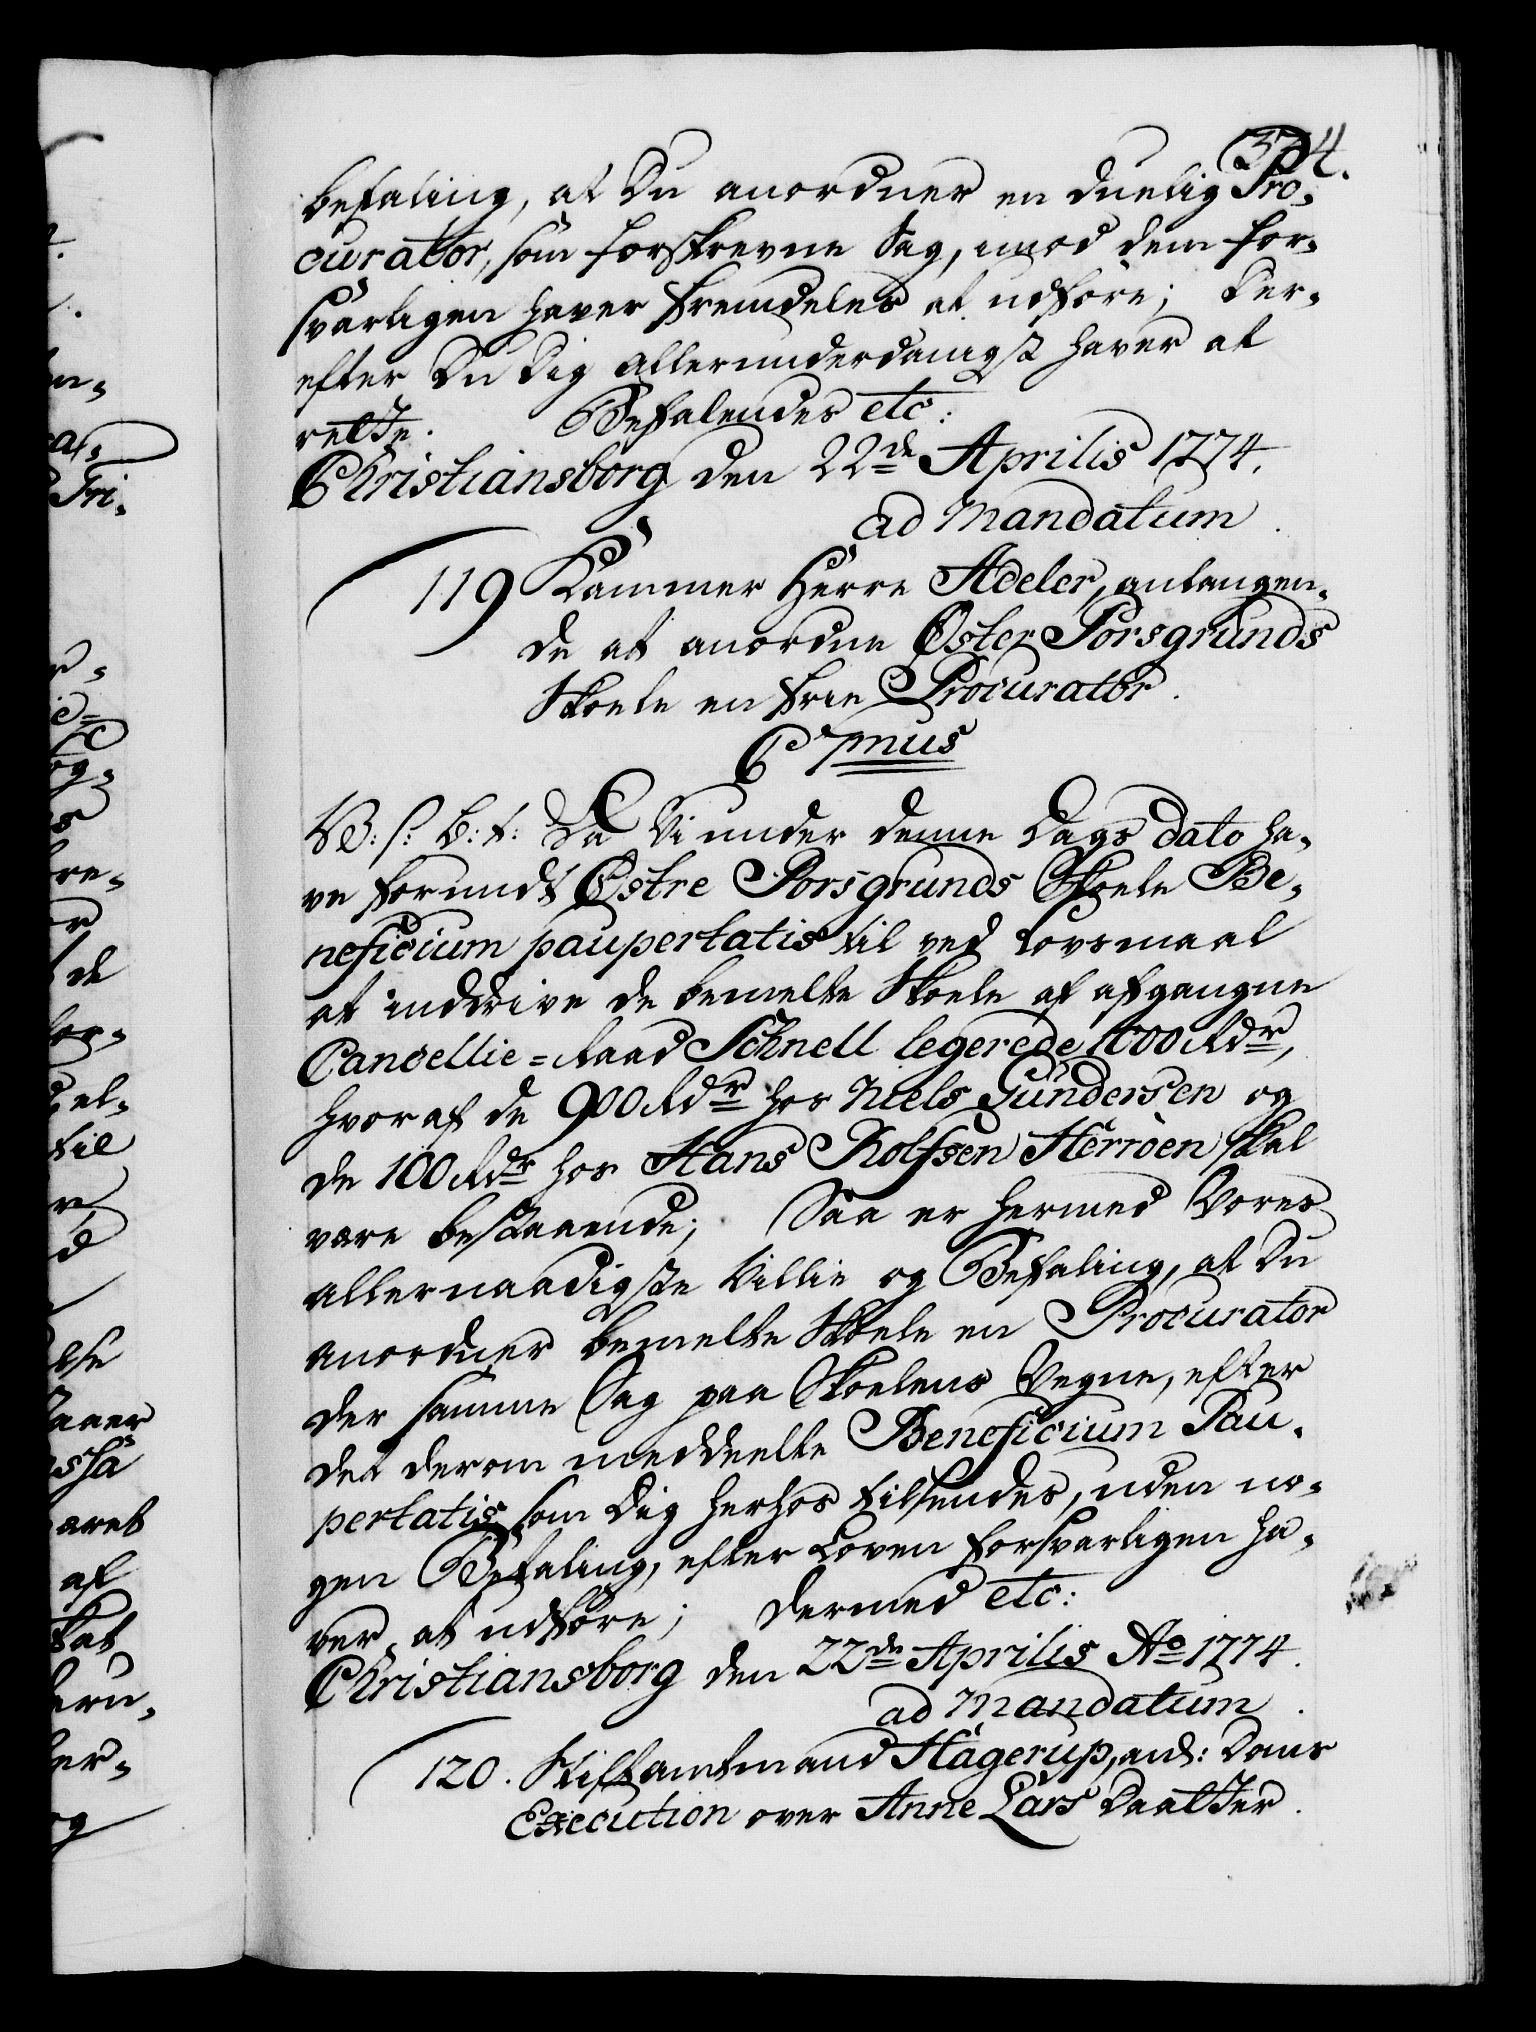 374.
befaling, at Du anordner en duelig Pro-
curator, som forskrevne Sag, imod dem for-
svarligen haver fremdeles at udføre; Der-
efter Du Dig allerunderdanigst haver at
rette. Befalendes etc:
Christiansborg den 22de Aprilis 1774.
ad Mandatum.
119 Kammer Herre Adeler, anlangen-
de at anordne Øster Porsgrunds
Skoele en frie Procurator.
C 7mus
V: s: B: t: Da Vi under denne Dags dato ha-
ve forundt Østre Porsgrunds Skoele Be-
neficium paupertatis til ved Lovsmaal
at inddrive de bemelte Skoele af afgangne
Cancellie=Raad Schnell legerede 1000 Rdr,
hvoraf de 900 Rdr hos Niels Gundersen og
de 100 Rdr hos Hans Rolfsen Herröen skal
være bestaaende; Saa er hermed Vores
allernaadigste Villie og Befaling, at Du
anordner bemelte Skoele en Procurator
der samme Sag paa Skoelens Vegne, efter
det derom meddeelte Beneficium Pau-
pertatis som Dig herhos tilsendes, uden no-
gen Befaling, efter Loven forsvarligen ha-
ver at udføre; Dermed etc:
Christiansborg den 22de Aprilis Ao 1774.
ad Mandatum.
120. Stiftamtmand Hagerup, anl: Dons
Execution over Anne Lars Daatter.